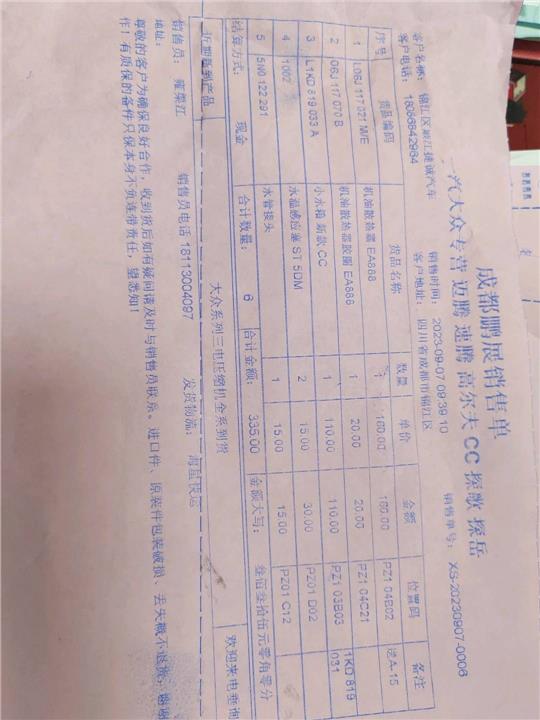 成都鹏展销售单
一汽大众专营 迈腾 速腾 高尔夫 CC 探歌 探岳
客户名称: 锦江区顺江捷诚汽车 销售时间: 2023-09-07 09:39:10 销售单号: XS-20230907-0006
客户电话: 18086842984 客户地址: 四川省成都市锦江区
序号 货品编码 货品名称 数量 单价 金额 位置码 备注
1 L06J 117 021 M/E 机油散热器 EA888 1 160.00 160.00 PZ1 04B02 送A-15
2 06J 117 070 B 机油散热器胶圈 EA888 1 20.00 20.00 PZ1 04C21
3 L1KD 819 033 A 小水箱 新款 CC 1 110.00 110.00 PZ1 03B03 1KD 819 031
4 1002 水温感应塞 ST 5DM 2 15.00 30.00 PZ01 D02
5 5N0 122 291 水管接头 1 15.00 15.00 PZ01 C12
结算方式: 现金 合计数量: 6 合计金额: 335.00 金额大写: 叁佰叁拾伍元零角零分
近期新到产品 大众系列三电压缩机全系列货 欢迎来电垂询
销售员: 雍荣江 销售员电话 18113004097 发货物流: 海星快运
地址:
尊敬的客户为确保良好合作, 收到货后如有疑问请及时与销售员联系。进口件、原装件包装破损、丢失概不退货, 谢谢
作! 有质保的备件只保本身不负连带责任, 望悉知!